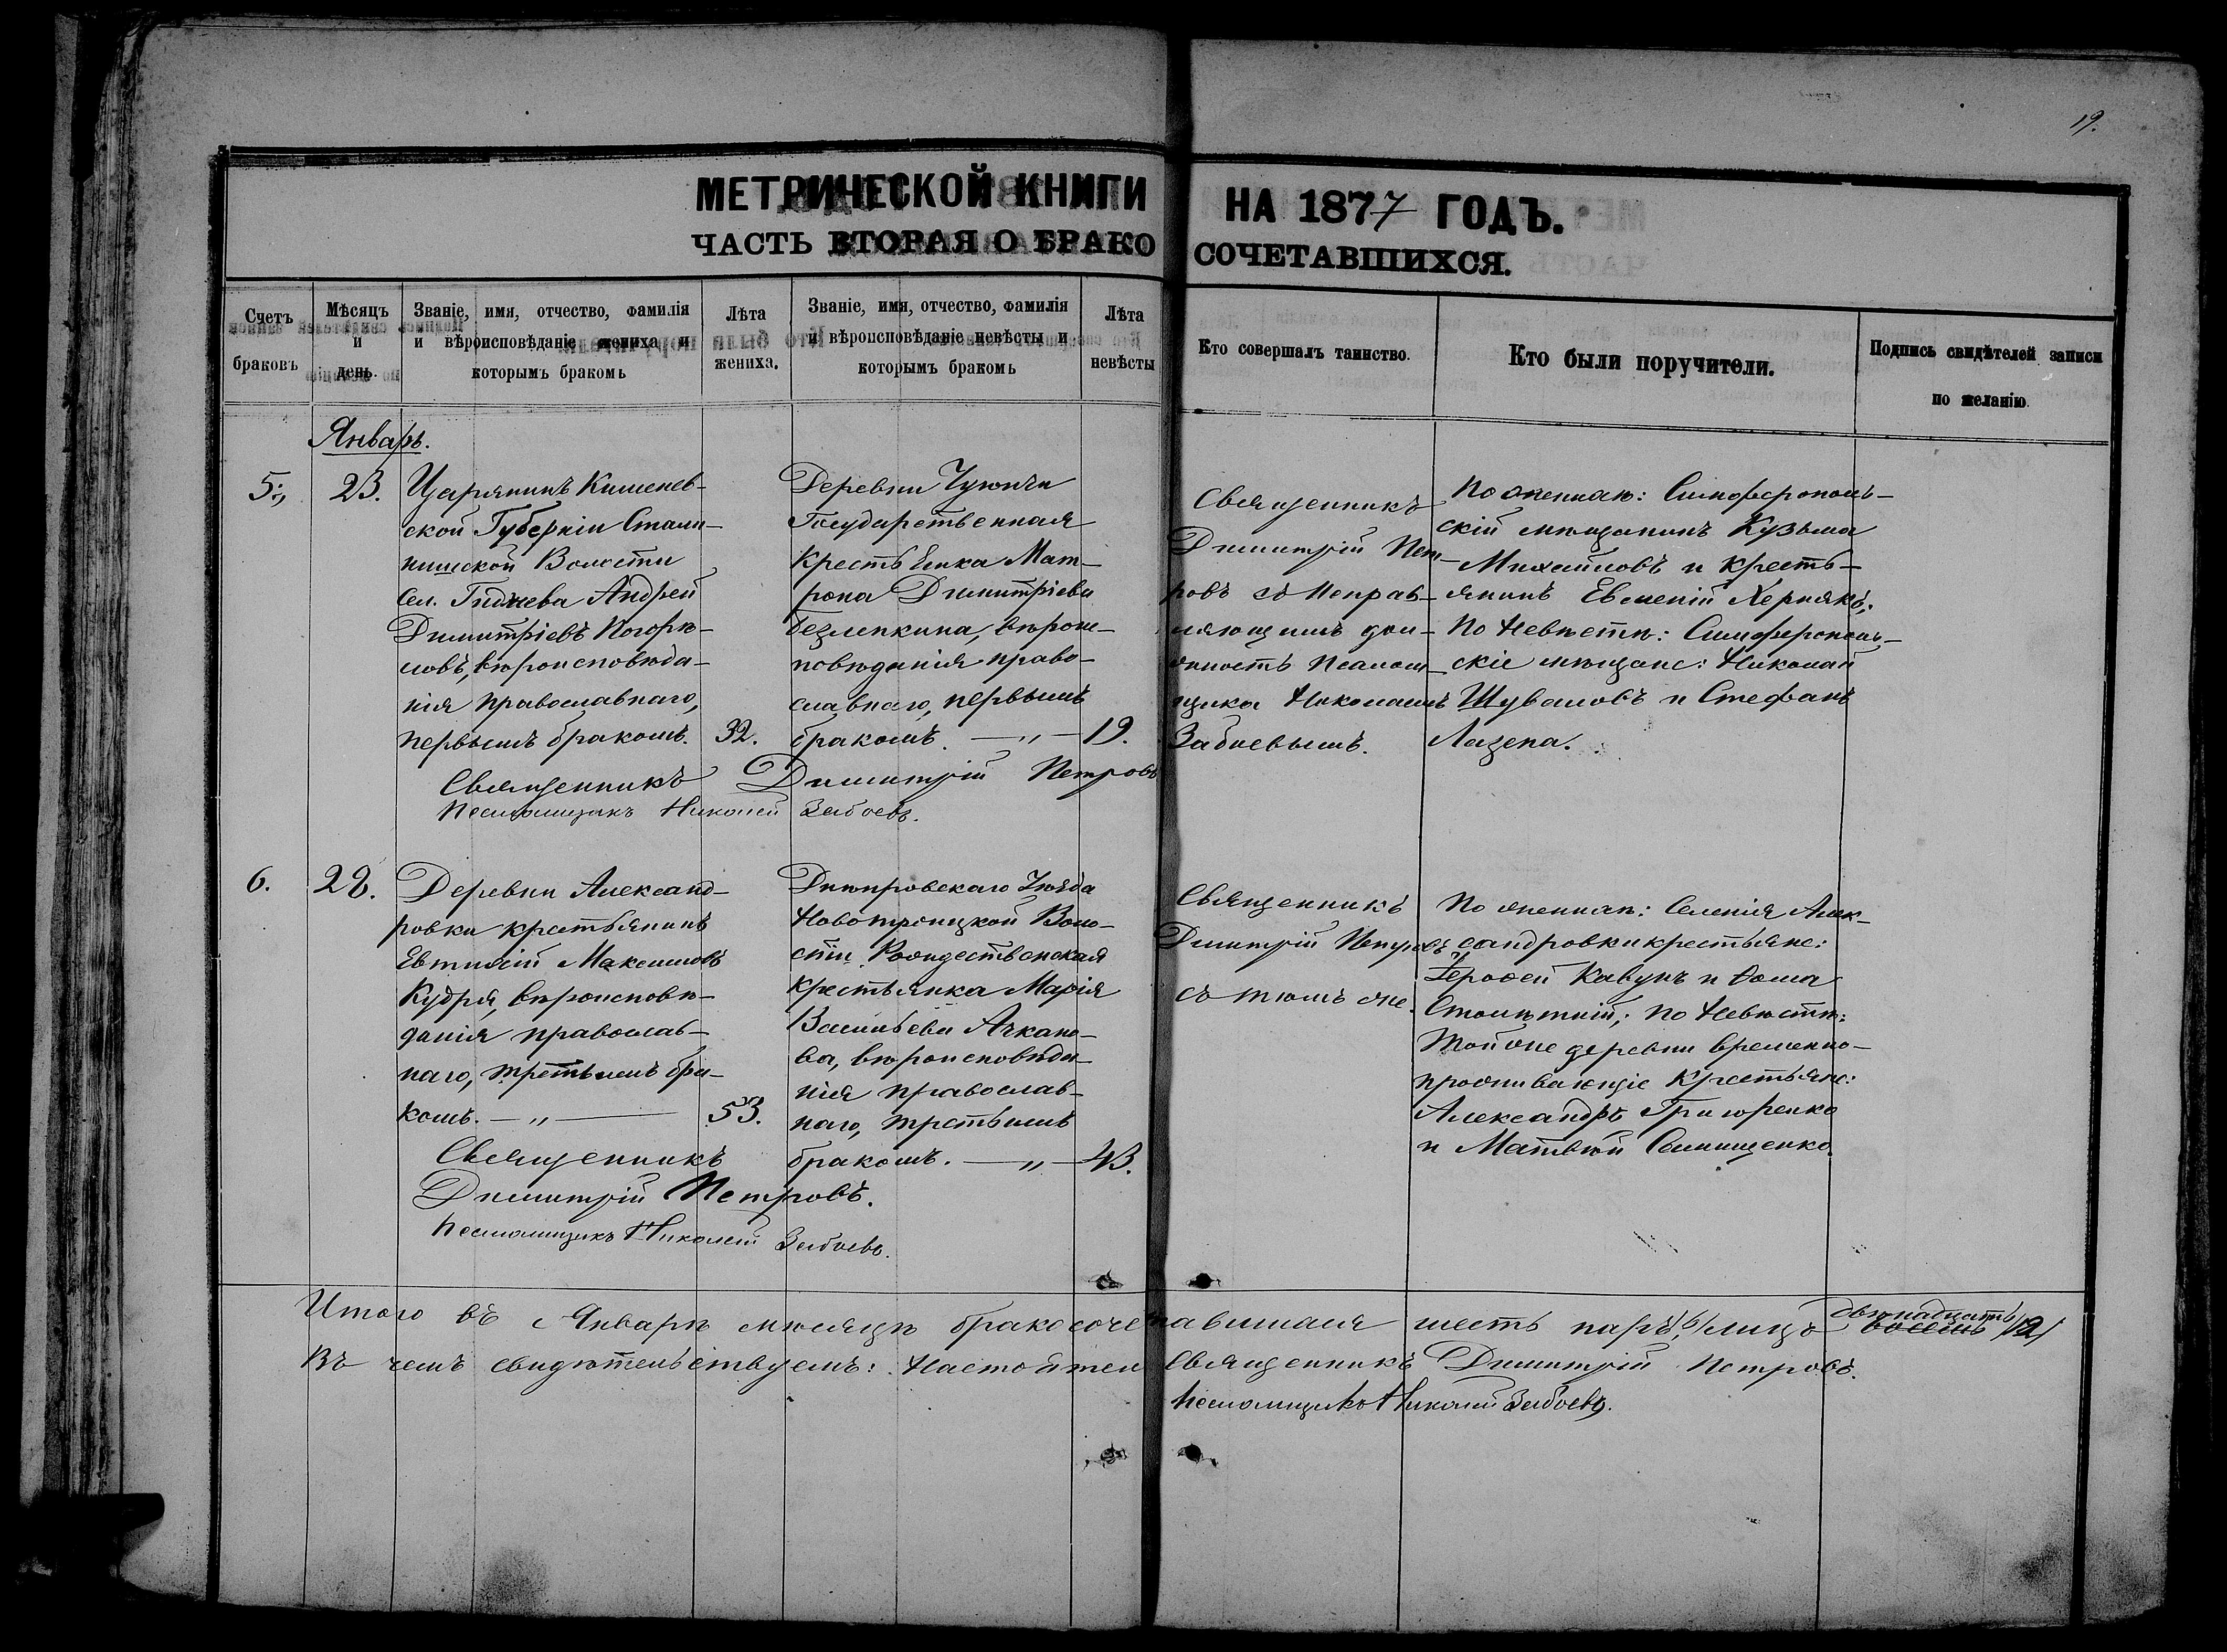 19.
МЕТРИЧЕСКОЙ КНИГИ НА 1877 ГОДЪ.
ЧАСТЬ ВТОРАЯ О БРАКОСОЧЕТАВШИХСЯ.
Счетъ браковъ
Мѣсяцъ и день.
Званіе, имя, отчество, фамилія и вѣроисповѣданіе жениха и которымъ бракомъ
Лѣта жениха.
Званіе, имя, отчество, фамилія и вѣроисповѣданіе невѣсты и которымъ бракомъ
Лѣта невѣсты
Кто совершалъ таинство.
Кто были поручители.
Подпись свидѣтелей записи по желанію.
Январь.
5.
23.
Царянинъ Кишенев-
ской Губерніи
Волости
Сел. Андрей
Димитріевъ Погорѣ-
ловъ, вѣроисповѣда-
нія православнаго,
первымъ бракомъ.
32.
Деревни
Государственная
Крестьянка Мат-
рона Димитріева
Безлепкина, вѣрои-
повѣданія право-
славнаго, первымъ
бракомъ. — „ —
19.
Священникъ
Димитрій Пет-
ровъ съ исправ-
ляющимъ дол-
жность псалом-
щика Николаемъ
Забоевымъ.
По женихѣ: Симферополь-
скій мѣщанинъ Кузьма
Михайловъ и кресть-
янинъ Евменій Черпякъ;
По Невѣстѣ: Симферополь-
скіе мѣщане: Николай
Шуваловъ и Стефанъ
Лазепа.
Священникъ Димитрій Петровъ
Псаломщикъ Николай Забоевъ.
6.
28.
Деревни Александ-
ровки крестьянинъ
Евтихій Максимовъ
Кудря, вѣроисповѣ-
данія православ-
наго, третьимъ бра-
комъ. — „ —
53.
Днѣпровскаго Уѣзда
Новотроицкой Воло-
сти Рождественская
крестьянка Марія
Васильева Ачкано-
ва, вѣроисповѣда-
нія православ-
наго, третьимъ
бракомъ. — „ —
43.
Священникъ
Димитрій Петровъ
съ тѣмъ же.
По женихѣ: Селенія Алек-
сандровки крестьяне:
Ерофей Кавунъ и Ѳома
Столѣтній; по Невѣстѣ:
Той же деревни временно-
проживающіе Крестьяне:
Александръ Григоренко
и Матвѣй Семищенко.
Священникъ
Димитрій Петровъ.
Псаломщикъ Николай Забоевъ.
Итого въ Январѣ мѣсяцѣ бракосочетавшихся шесть паръ, /6/ лицъ восемь двѣнадцать /12/
Въ чемъ свидѣтельствуемъ: Настоятель Священникъ Димитрій Петровъ.
Псаломщикъ Николай Забоевъ.